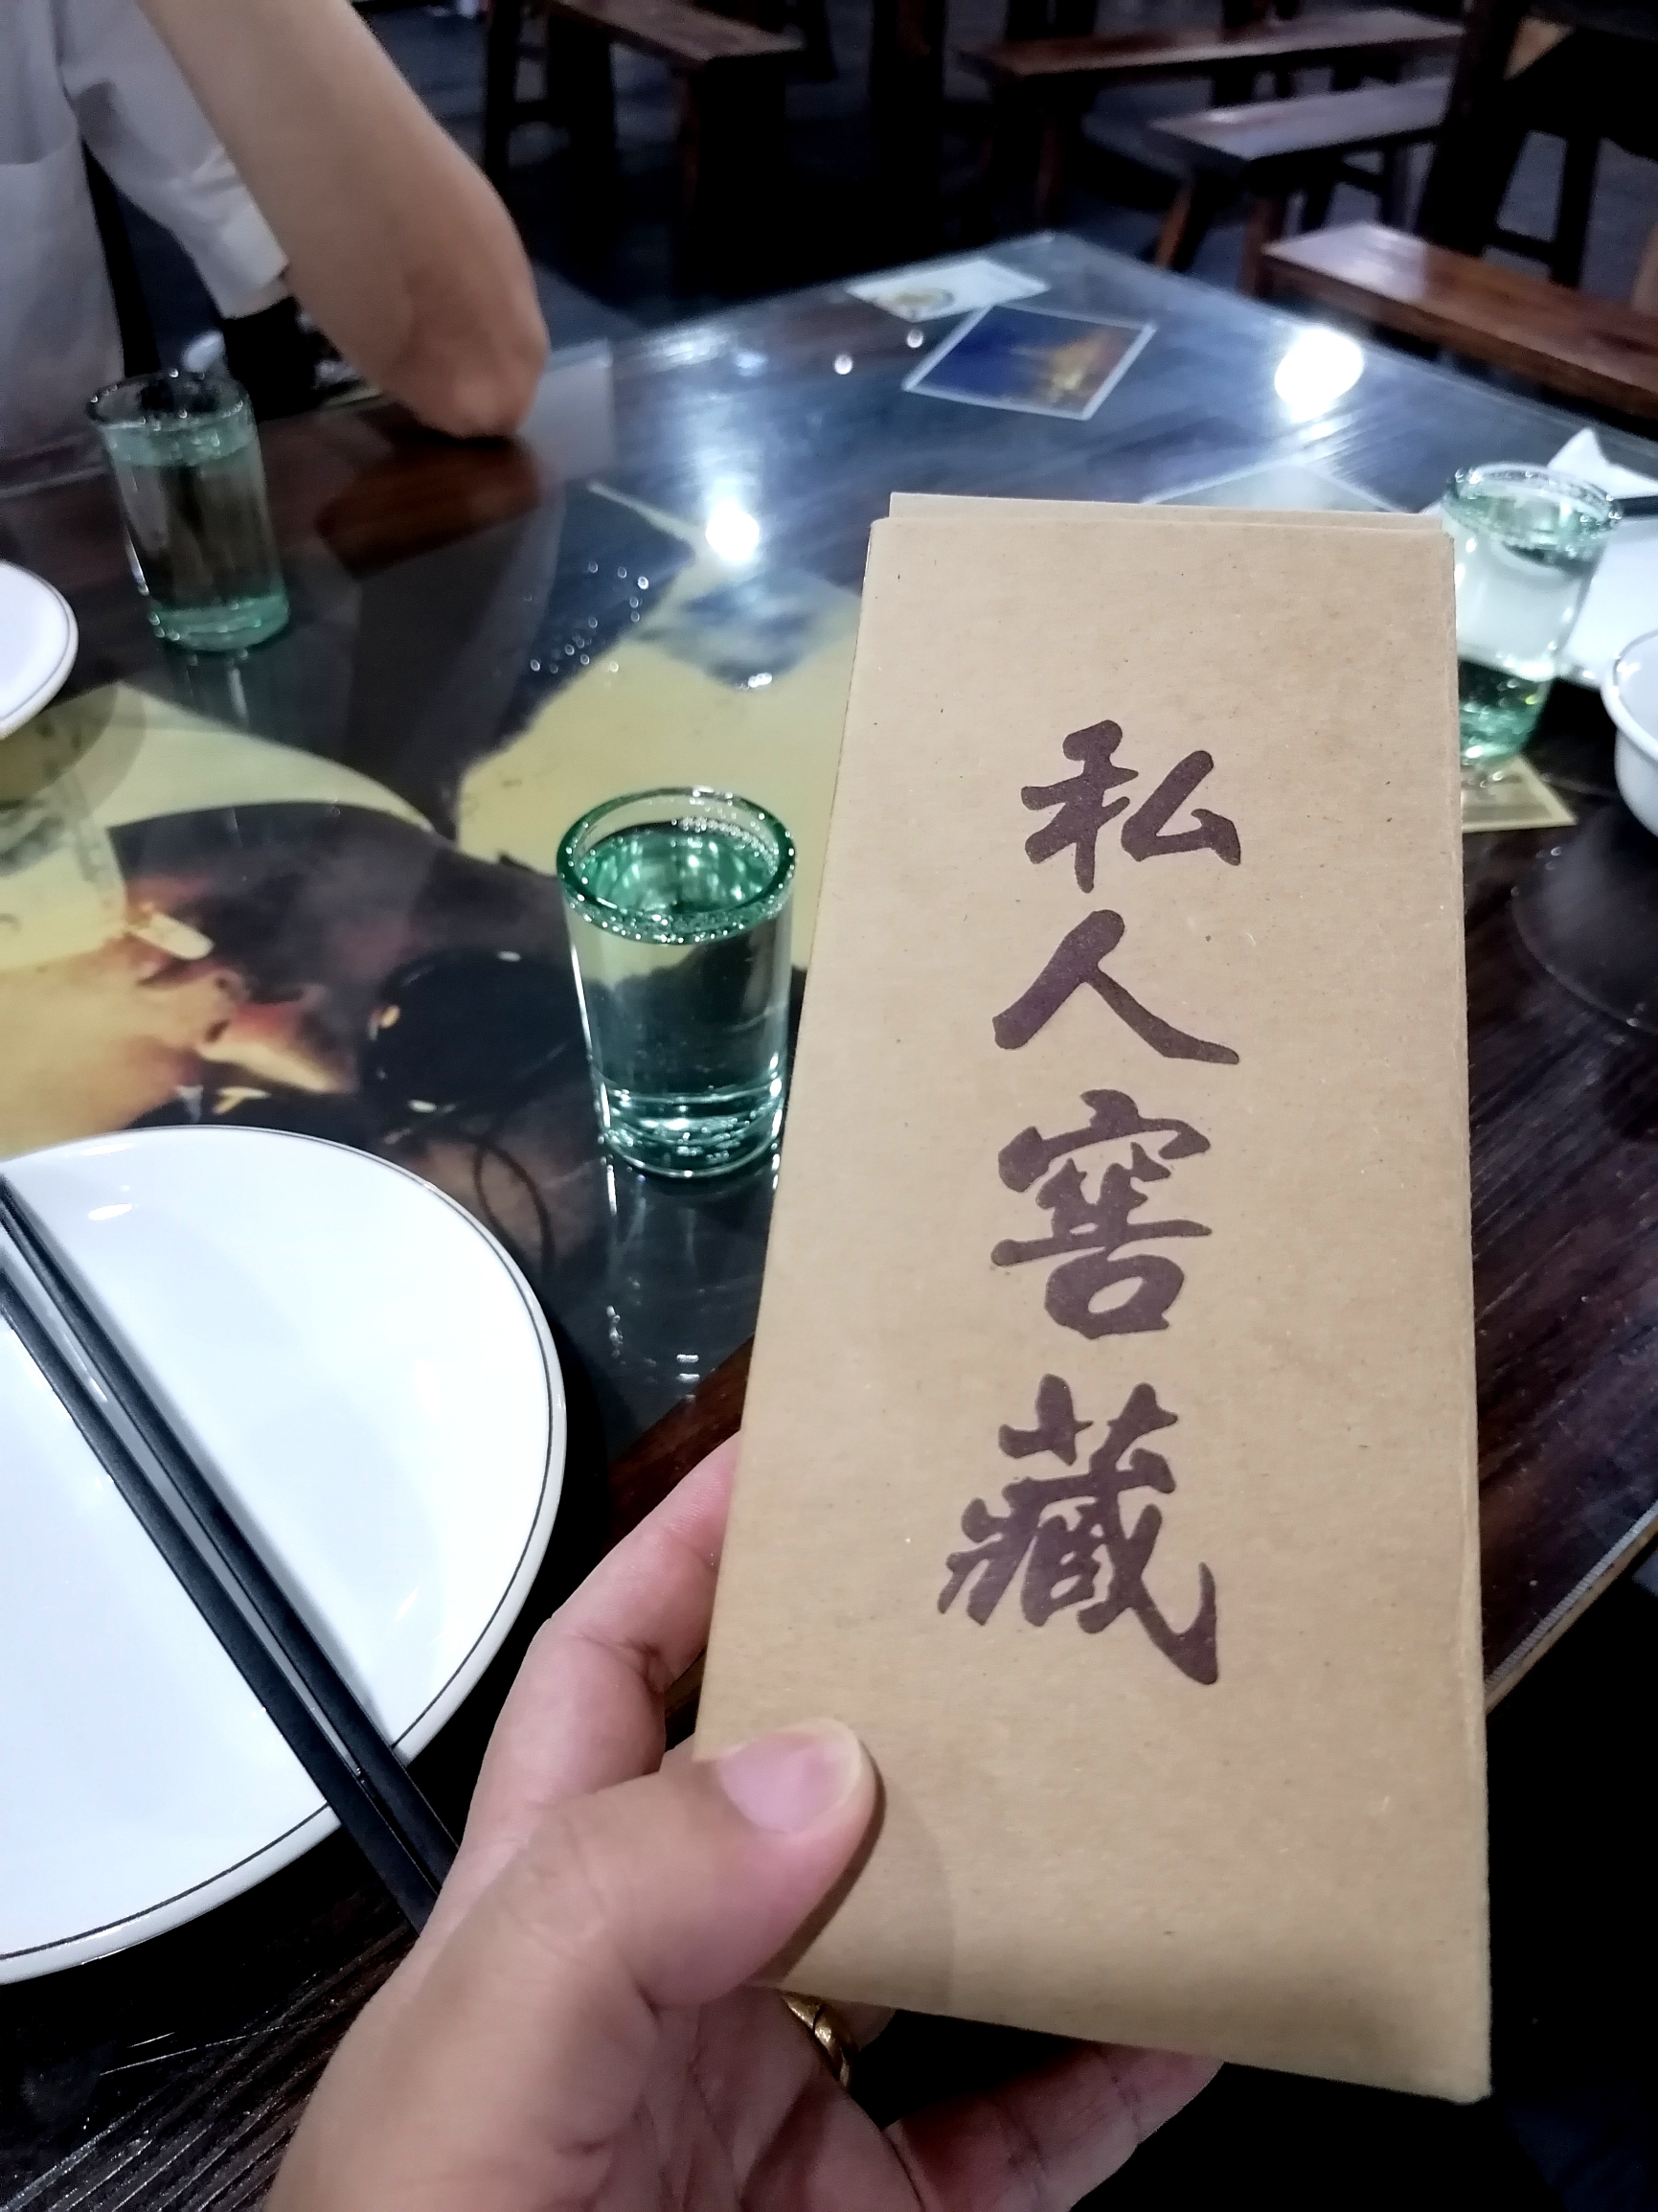 私人窖藏